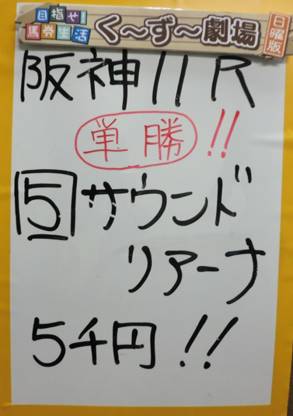 目指せ!
馬券生活
く～ず～劇場
日曜版
阪神11R
単勝!!
5 サウンド
リアーナ
5千円!!